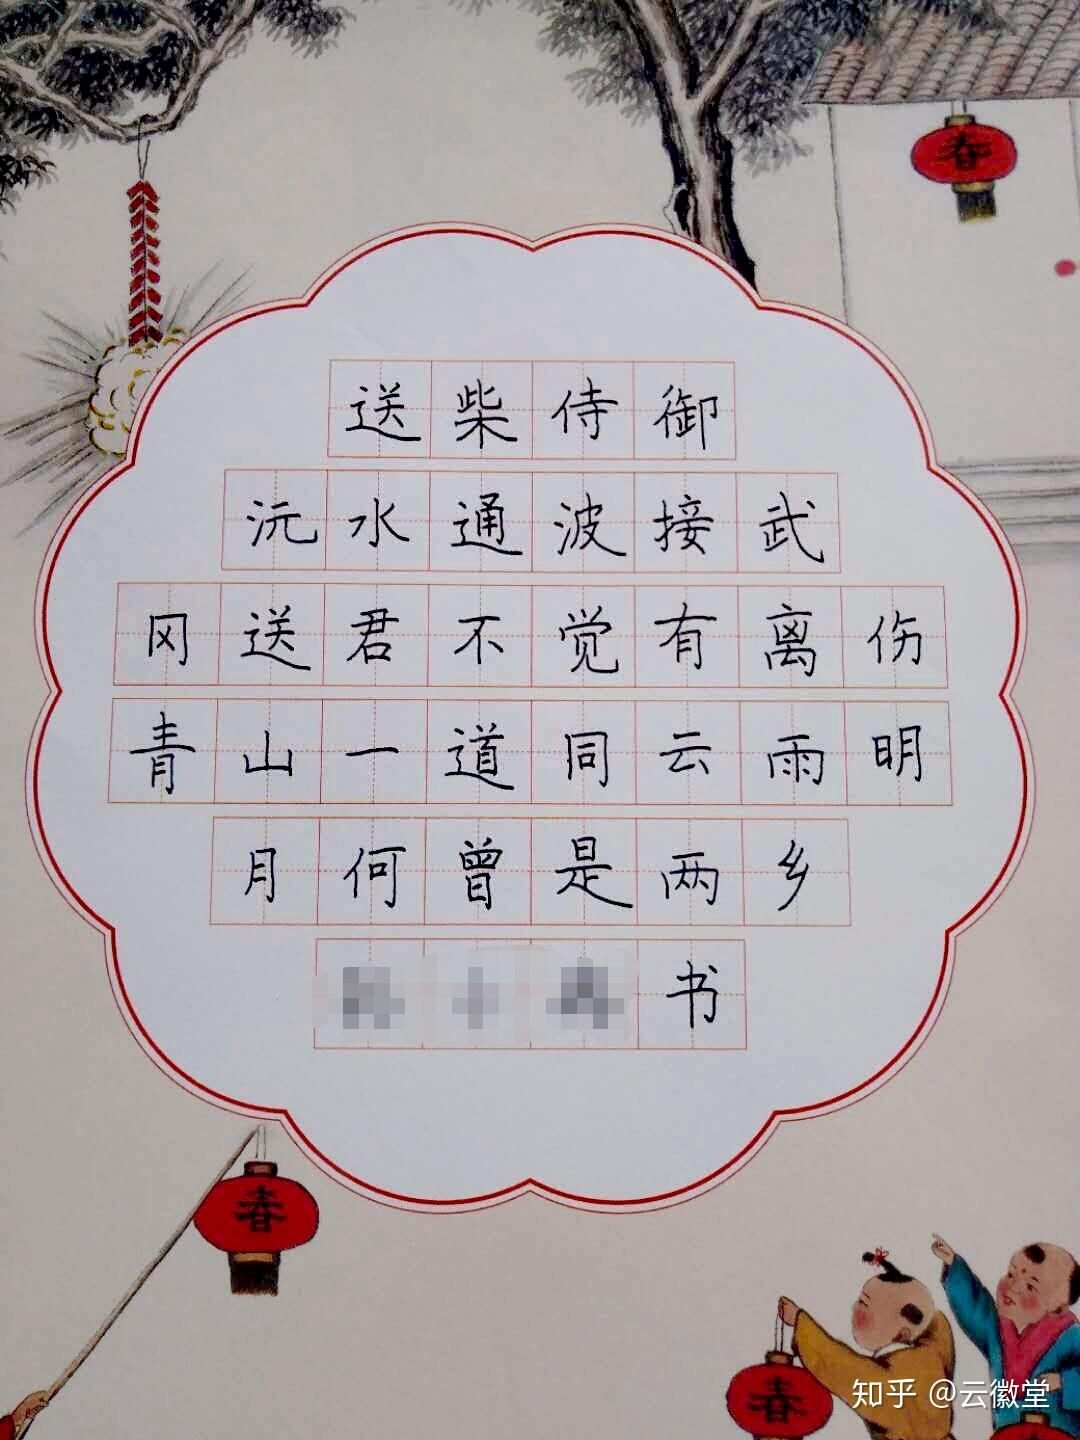 春
送柴侍御
沅水通波接武
冈送君不觉有离伤
青山一道同云雨明
月何曾是两乡
书
春
春
知乎 @云徽堂